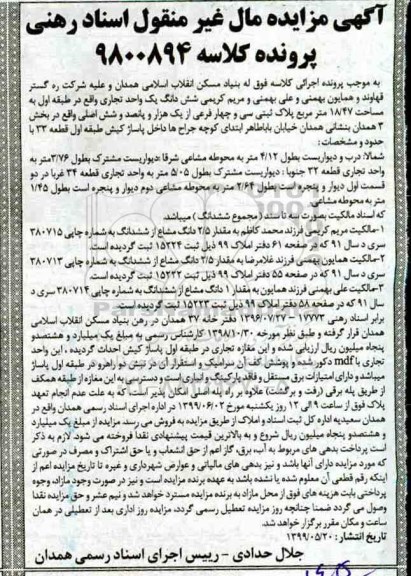 آگهی مزایده مال غیر منقول اسناد رهنی
پرونده کلاسه ۹۸۰۰۸۹۴
به موجب پرونده اجرائی کلاسه فوق له بنیاد مسکن انقلاب اسلامی همدان و علیه شرکت ره گستر
قهاوند و همایون بهمنی و علی بهمنی و مریم کریمی شش دانگ یک واحد تجاری واقع در طبقه اول به
مساحت ۱۸/۴۷ متر مربع پلاک ثبتی سی و چهار فرعی از یک هزار و پانصد و شش اصلی واقع در بخش
۳ همدان بنشانی همدان خیابان باباطاهر ابتدای کوچه جراح ها داخل پاساژ کیش طبقه اول قطعه ۳۳ با
حدود و مشخصات:
شمالا: درب و دیواریست بطول ۴/۱۲ متر به محوطه مشاعی شرقا: دیواریست مشترک بطول ۳/۷۶متر به
واحد تجاری قطعه ۳۲ جنوبا: دیواریست مشترک بطول ۵/۰۵ متر به واحد تجاری قطعه ۳۴ غربا در دو
قسمت اول دیوار و پنجره است بطول ۲/۶۴ متر به محوطه مشاعی دوم دیوار و پنجره است بطول ۱/۴۵
متر به محوطه مشاعی
که اسناد مالکیت بصورت سه تا سند (مجموع ششدانگ) میباشد.
۱-مالکیت مریم کریمی فرزند محمد کاظم به مقدار ۲/۵ دانگ مشاع از ششدانگ به شماره چاپی ۳۸۰۷۱۵
سری د سال ۹۱ که در صفحه ۶۱ دفتر املاک ۹۹ ذیل ثبت ۱۵۲۲۴ ثبت گردیده است.
۲-مالکیت همایون بهمنی فرزند غلامرضا به مقدار ۲/۵ دانگ مشاع از ششدانگ به شماره چاپی ۳۸۰۷۱۳
سری د سال ۹۱ که در صفحه ۵۵ دفتر املاک ۹۹ ذیل ثبت ۱۵۲۲۲ ثبت گردیده است.
۳-مالکیت علی بهمنی فرزند همایون به مقدار ۱ دانگ مشاع از ششدانگ به شماره چاپی ۳۸۰۷۱۴ سری د
سال ۹۱ که در صفحه ۵۸ دفتر املاک ۹۹ ذیل ثبت ۱۵۲۲۳ ثبت گردیده است.
برابر اسناد رهنی ۱۷۷۷۳ - ۱۳۹۶/۰۷/۲۷ دفتر خانه ۳۷ همدان در رهن بنیاد مسکن انقلاب اسلامی
همدان قرار گرفته و طبق نظر مورخه ۱۳۹۸/۱۰/۳۰ کارشناس رسمی به مبلغ یک میلیارد و هشتصدو
پنجاه میلیون ریال ارزیابی شده و این مغازه تجاری در طبقه اول پاساژ کیش احداث گردیده، این واحد
تجاری با mdf دکور شده و پوشش کف آن سرامیک و استقرار آن در نبش دو راهرو در طبقه اول پاساژ
میباشد و دارای امتیازات برق مستقل و فاقد پارکینگ و انباری است و دسترسی به این مغازه از طبقه همکف
از طریق پله برقی (رفت و برگشت) علاوه بر راه پله اصلی امکان پذیر است. که به علت عدم انجام تعهد
پلاک فوق از ساعت ۹ الی ۱۲ روز یکشنبه مورخ ۱۳۹۹/۰۶/۰۲ در اداره اجرای اسناد رسمی همدان واقع در
همدان سعیدیه اداره کل ثبت اسناد و املاک از طریق مزایده به فروش می رسد. مزایده از مبلغ یک میلیارد
و هشتصدو پنجاه میلیون ریال شروع و به بالاترین قیمت پیشنهادی نقدا فروخته می شود. لازم به ذکر
است پرداخت بدهی های مربوط به آب، برق، گاز اعم از حق انشعاب و یا حق اشتراک و مصرف در صورتی
که مورد مزایده دارای آنها باشد و نیز بدهی های مالیاتی و عوارض شهرداری و غیره تا تاریخ مزایده اعم از
اینکه رقم قطعی آن معلوم شده یا نشده باشد به عهده برنده مزایده است و نیز در صورت وجود مازاد، وجوه
پرداختی بابت هزینه های فوق از محل مازاد به برنده مزایده مسترد خواهد شد و نیم عشر و حق مزایده نقدا
وصول می گردد ضمنا چنانچه روز مزایده تعطیل رسمی گردد، مزایده روز اداری بعد از تعطیلی در همان
ساعت و مکان مقرر برگزار خواهد شد.
تاریخ انتشار: ۱۳۹۹/۰۵/۲۰
جلال حدادی - رییس اجرای اسناد رسمی همدان